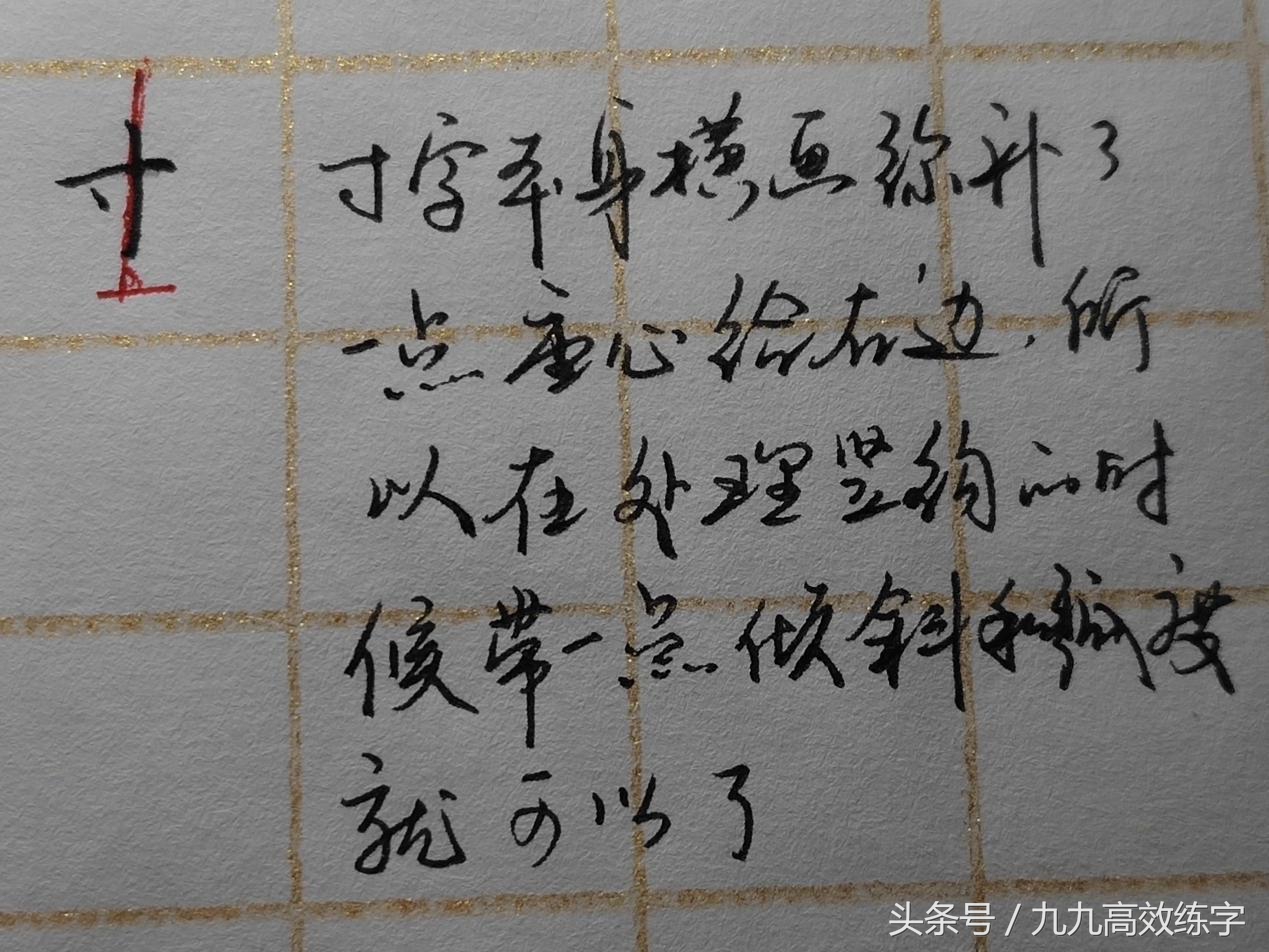 寸
寸字本身横画弥补了
一点重心给右边,所
以在处理竖钩的时
候带一点倾斜和弧度
就可以了
头条号 / 九九高效练字